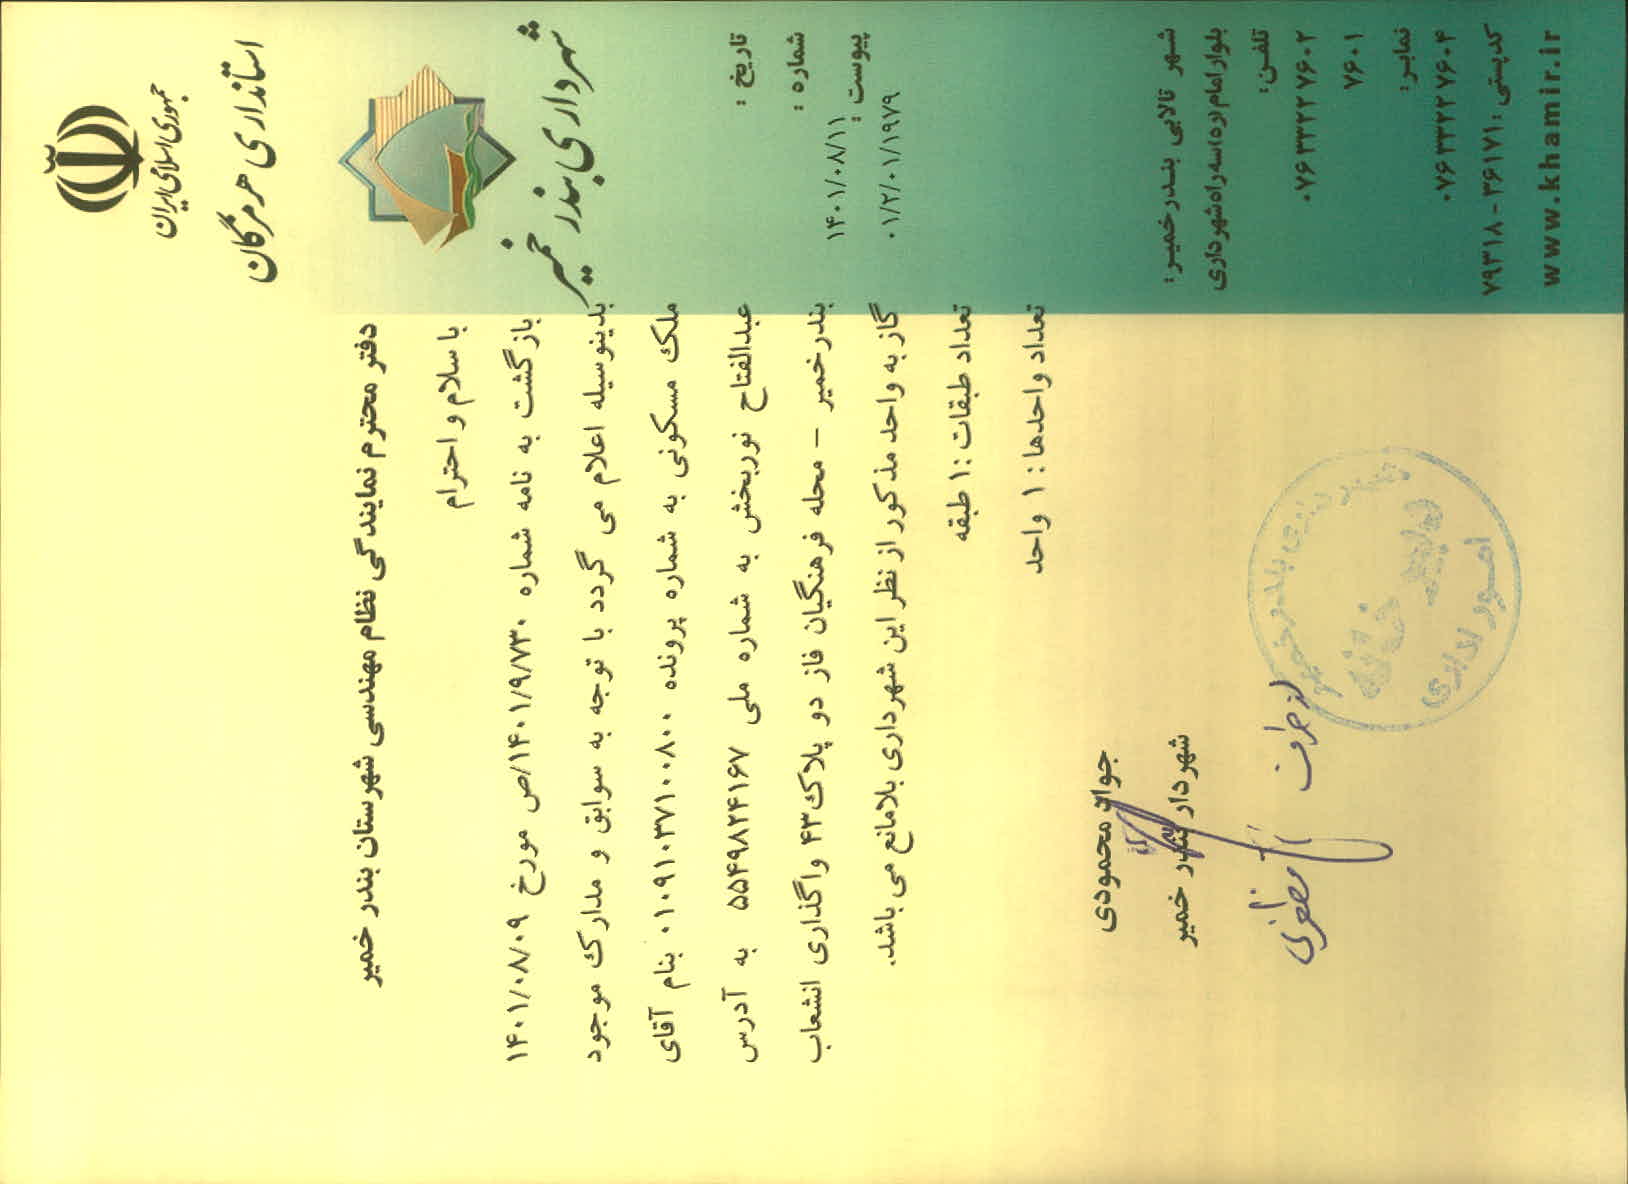 جمهوری اسلامی ایران
استانداری هرمزگان
شهرداری بندر خمیر
تاریخ :
شماره :
پیوست :
۱۴۰۱/۰۸/۱۱
۰۱/۲/۰۱/۱۹۷۹
دفتر محترم نمایندگی نظام مهندسی شهرستان بندر خمیر
با سلام و احترام
بازگشت به نامه شماره ۱۴۰۱/۹/۷۳۰/ص مورخ ۱۴۰۱/۰۸/۰۹
بدینوسیله اعلام می گردد با توجه به سوابق و مدارک موجود
ملک مسکونی به شماره پرونده ۰۱۰۹۱۰۳۷۱۰۰۸۰۰ بنام آقای
عبدالفتاح نوربخش به شماره ملی ۵۵۴۹۸۲۴۱۶۷ به آدرس
بندرخمیر – محله فرهنگیان فاز دو پلاک۴۳ واگذاری انشعاب
گاز به واحد مذکور از نظر این شهرداری بلامانع می باشد.
تعداد طبقات :۱ طبقه
تعداد واحدها : ۱ واحد
جواد محمودی
شهردار بندر خمیر
از طرف
مظفری
شهرداری بندر خمیر
دبیرخانه
امور اداری
شهر تالابی بندرخمیر:
بلوار امام (ره) سه راه شهرداری
تلفن:
۰۷۶۳۳۲۲۷۶۰۲
۷۶۰۱
نمابر:
۰۷۶۳۳۲۲۷۶۰۴
کدپستی: ۳۶۱۷۱-۷۹۳۱۸
www.khamir.ir